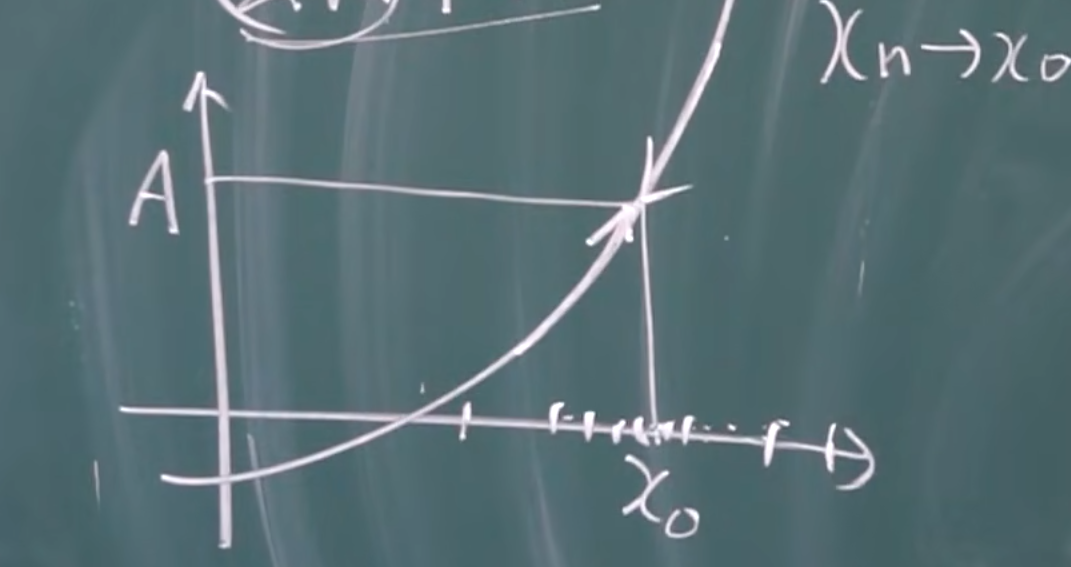 xₙ→x₀
A
x₀